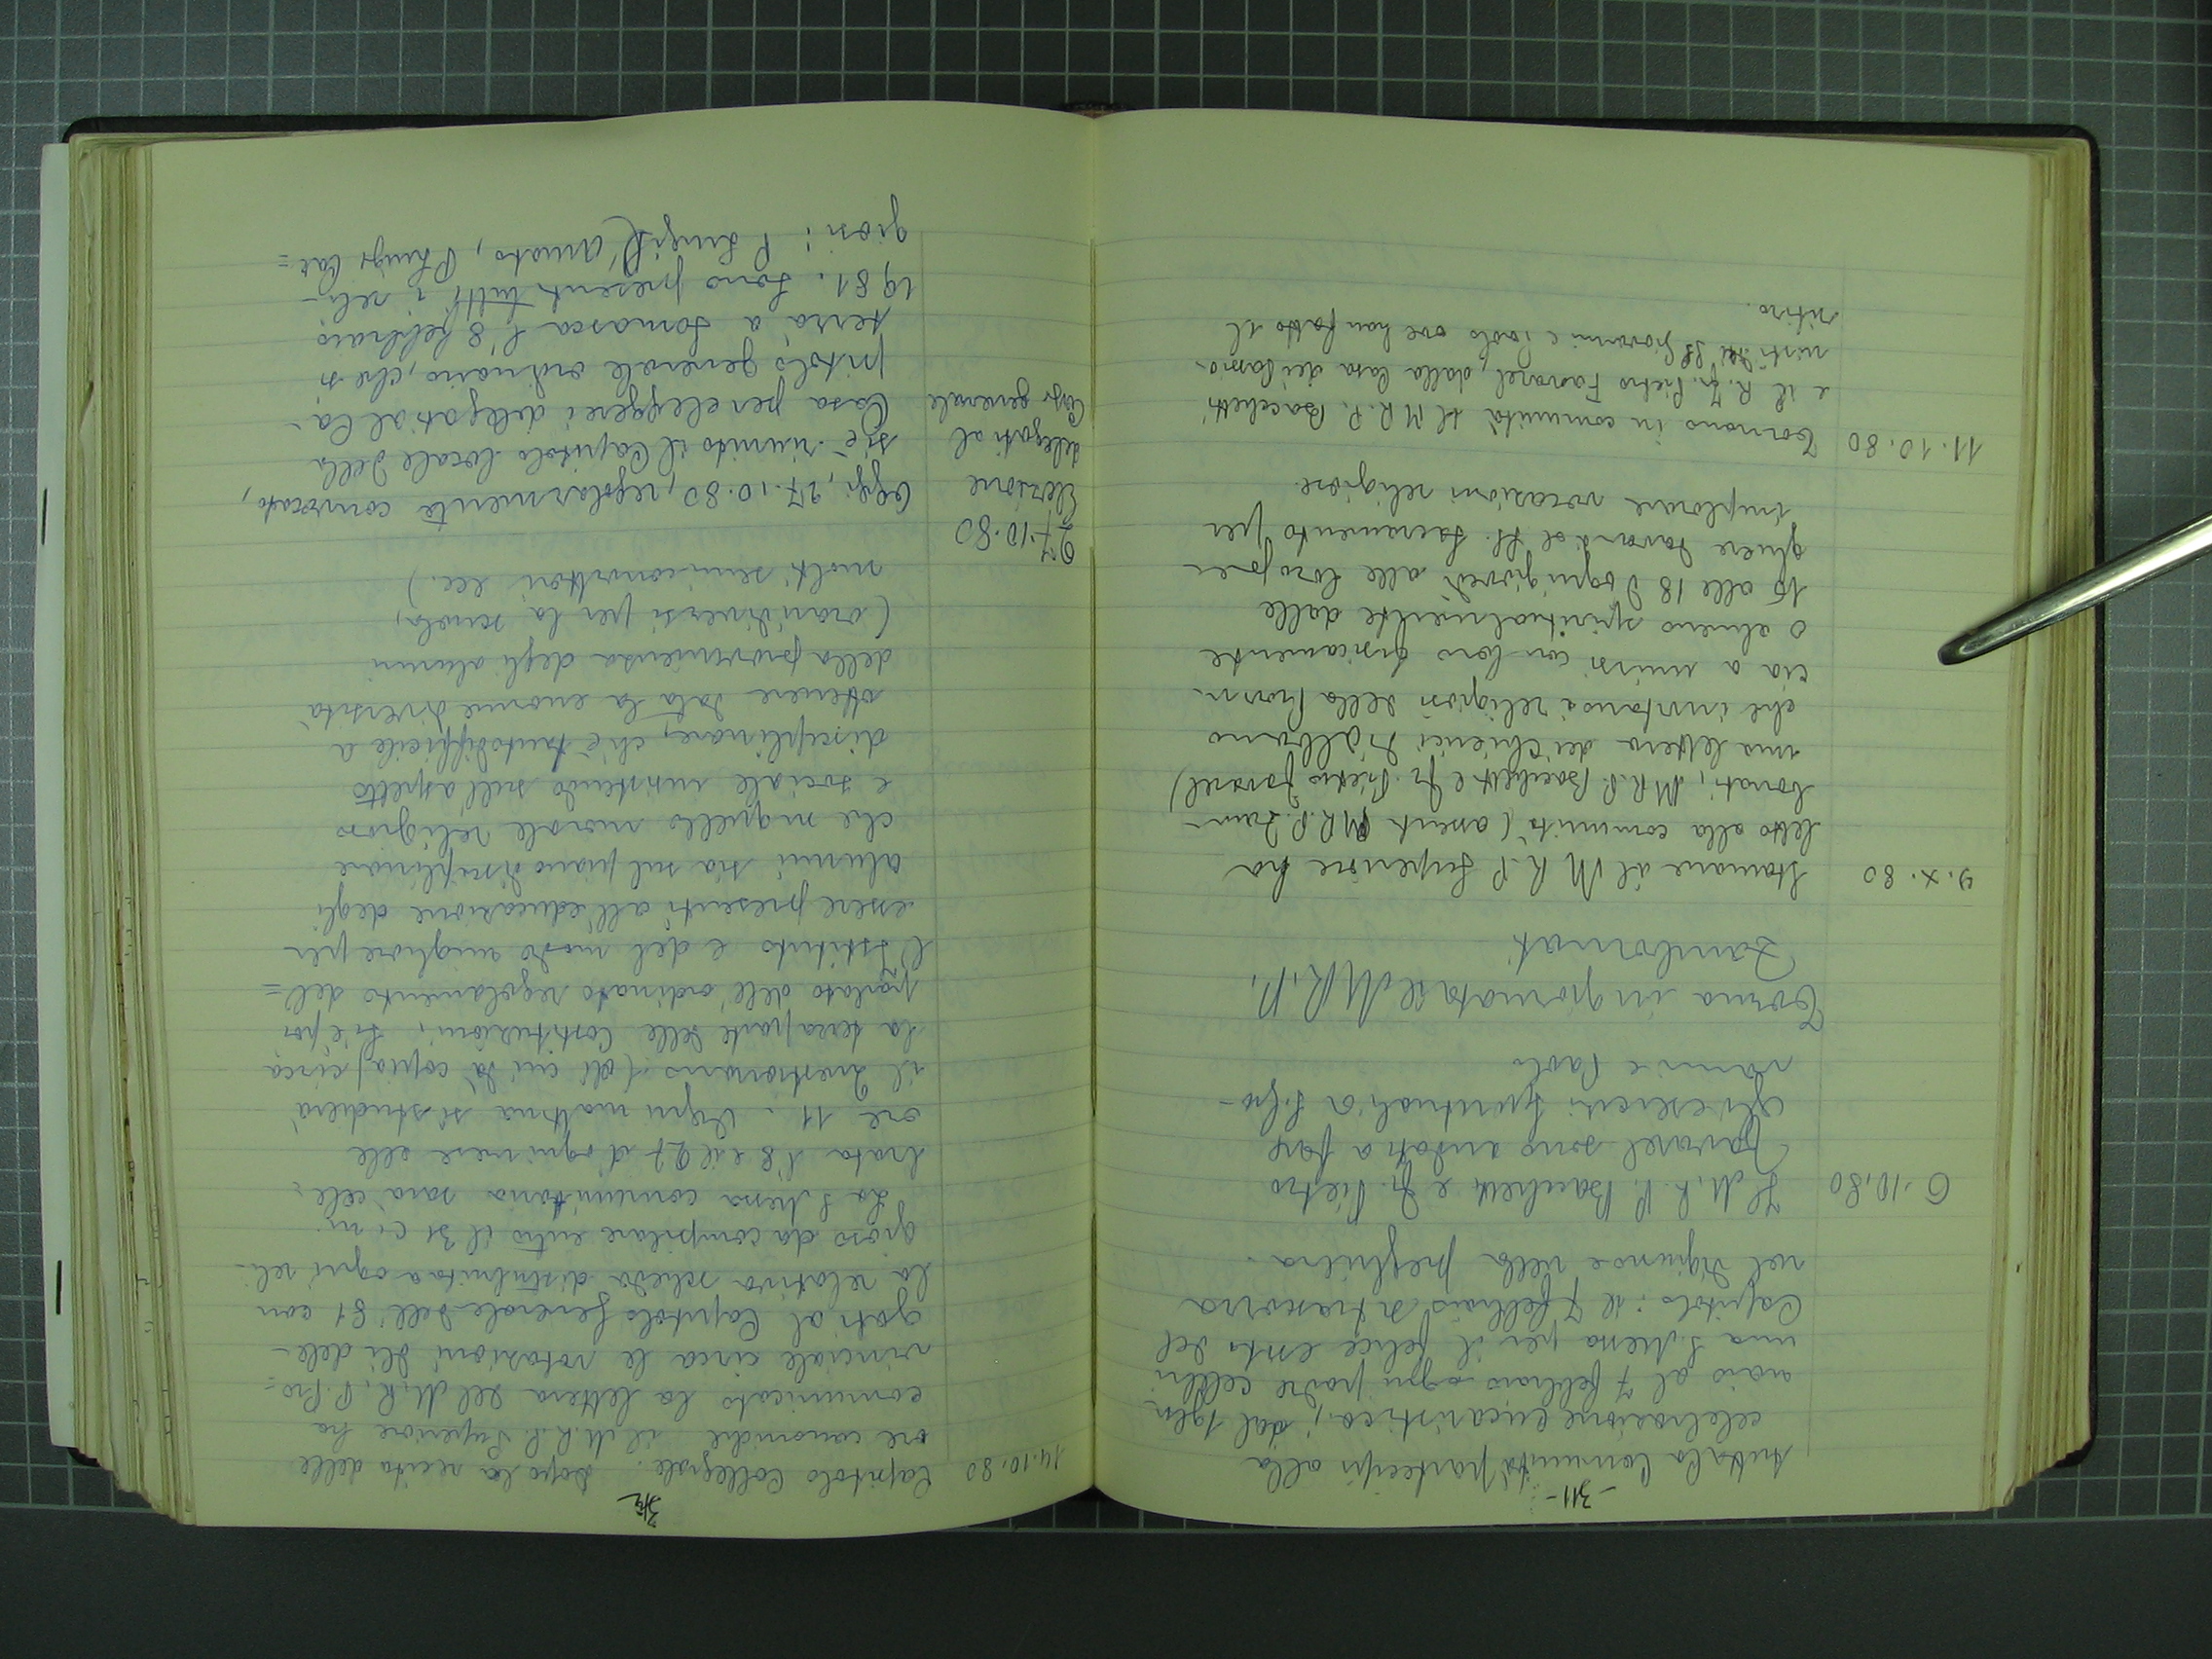 -311-
tutta la Comunità partecipi alla
celebrazione eucaristica; dal 1 gen
naio al 7 febbraio ogni padre celebri
una S. Messa per il felice esito del
Capitolo: il 7 febbraio si trascorra
nel digiuno e nella preghiera.
6.10.80
Il M.R.P. Bacchetti e fr. Pietro
Favarel sono andati a fare
gli esercizi spirituali a S. Gio-
vanni e Paolo
Torna in giornata il M.R.P.
Zambonati
9.X.80
Stamane il M.R.P. Superiore ha
letto alla comunità (assenti M.R.P. Zam-
bonati, M.R.P. Bacchetti e fr. Pietro Favarel)
una lettera dei Chierici di Albano
che invitano i religiosi della Provin
cia a unirsi con loro fisicamente
o almeno spiritualmente dalle
15 alle 18 d'ogni giovedì alle loro pre
ghiere davanti al SS. Sacramento per
implorare vocazioni religiose.
11.10.80
Tornano in comunità il M.R.P. Bacchetti
e il R. fr. Pietro Favarel, dalla Casa dei Passio-
nisti dei SS Giovanni e Paolo ove han fatto il
ritiro.
312
14.10.80
Capitolo Collegiale. Dopo la recita delle
ore canoniche il M.R.P. Superiore ha
comunicato la lettera del M.R.P. Pro=
vinciale circa le votazioni dei dele-
gati al Capitolo Generale dell'81 con
la relativa scheda distribuita a ogni reli-
gioso da compilare entro il 31 c.m.
La S. Messa comunitaria sarà cele-
brata l'8 e il 27 d'ogni mese alle
ore 11. Ogni mattina si studierà
il Questionario (di cui dà copia) circa
la terza parte delle Costituzioni; si è poi
parlato dell'ordinato regolamento del=
l'Istituto e del modo migliore per
essere presenti all'educazione degli
alunni sia sul piano disciplinare
che in quello morale religioso
e sociale insistendo sull'aspetto
disciplinare, ch'è tanto difficile a
ottenere data la enorme diversità
della provenienza degli alunni
(orari diversi per la scuola,
molti semiconvittori ecc.)
27.10.80
Elezione
delegati al
Cap. generale
Oggi, 27.10.80, regolarmente convocato,
si è riunito il Capitolo locale della
Casa per eleggere i delegati al Ca-
pitolo generale ordinario, che si
terrà a Somasca l'8 febbraio
1981. Sono presenti tutti i reli-
giosi: P. Luigi Amato, P. Luigi Bac=